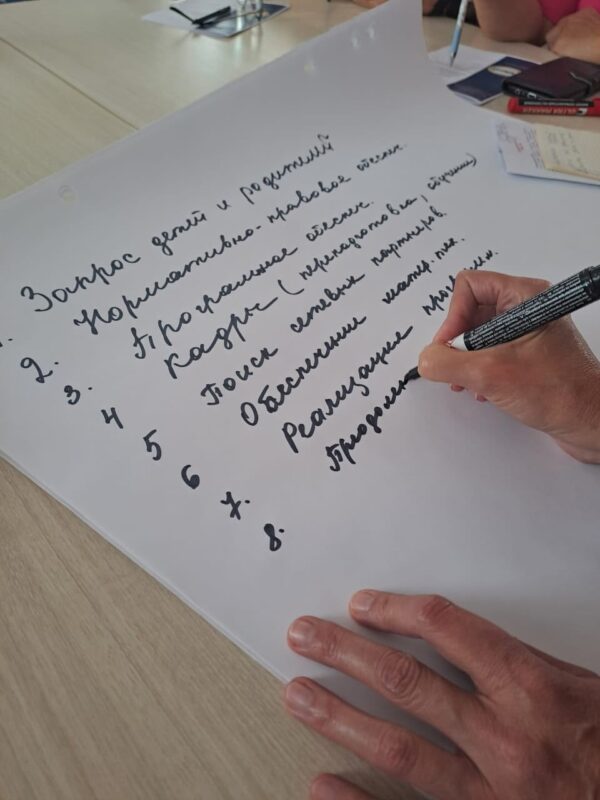 1. Запрос детей и родителей
2. Нормативно-правовое обеспеч.
3. Программное обеспеч.
4 Кадры (переподготовка, обучение)
5 Поиск сетевых партнеров.
6 Обеспечение матер. тех.
7. Реализация программ.
8.